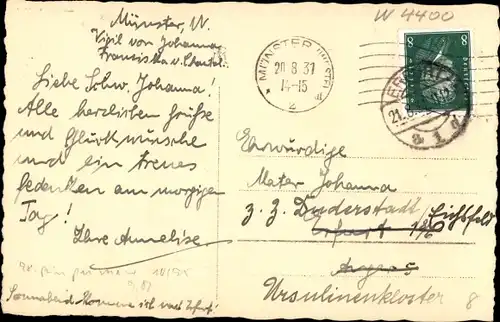 W 4400
Münster, W.
Vigil von Johanna
Franziska v. Chantal.
Liebe Schw. Johanna.
Alle herzlichen Grüße
und Glückwünsche
und ein treues
Gedenken am morgigen
Tag!
Ihre Annelise.
Sonnabend komme ich nach Erfurt!
MÜNSTER (WESTF)
20.8.31
14-15
2
8 8
21.8
a 1 d
Ehrwürdige
Mater Johanna
z. Z. Duderstadt/Eichsfeld
Erfurt
Anger 5
Ursulinenkloster
8